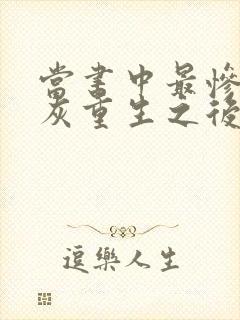 當書中最慘
灰重生之後
逗樂人生